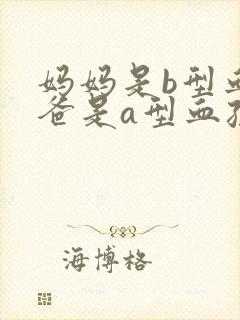 妈妈是b型血
爸是a型血孩
海博格